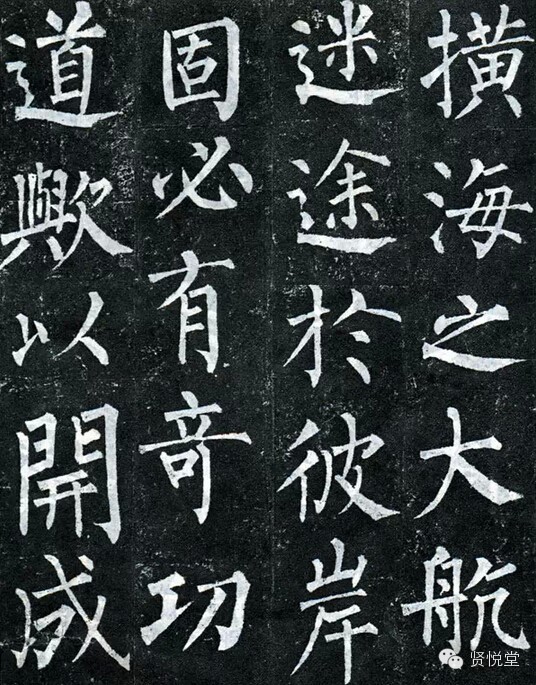 橫海之大航
迷途於彼岸
固必有奇功
道歟以開成
贤悦堂